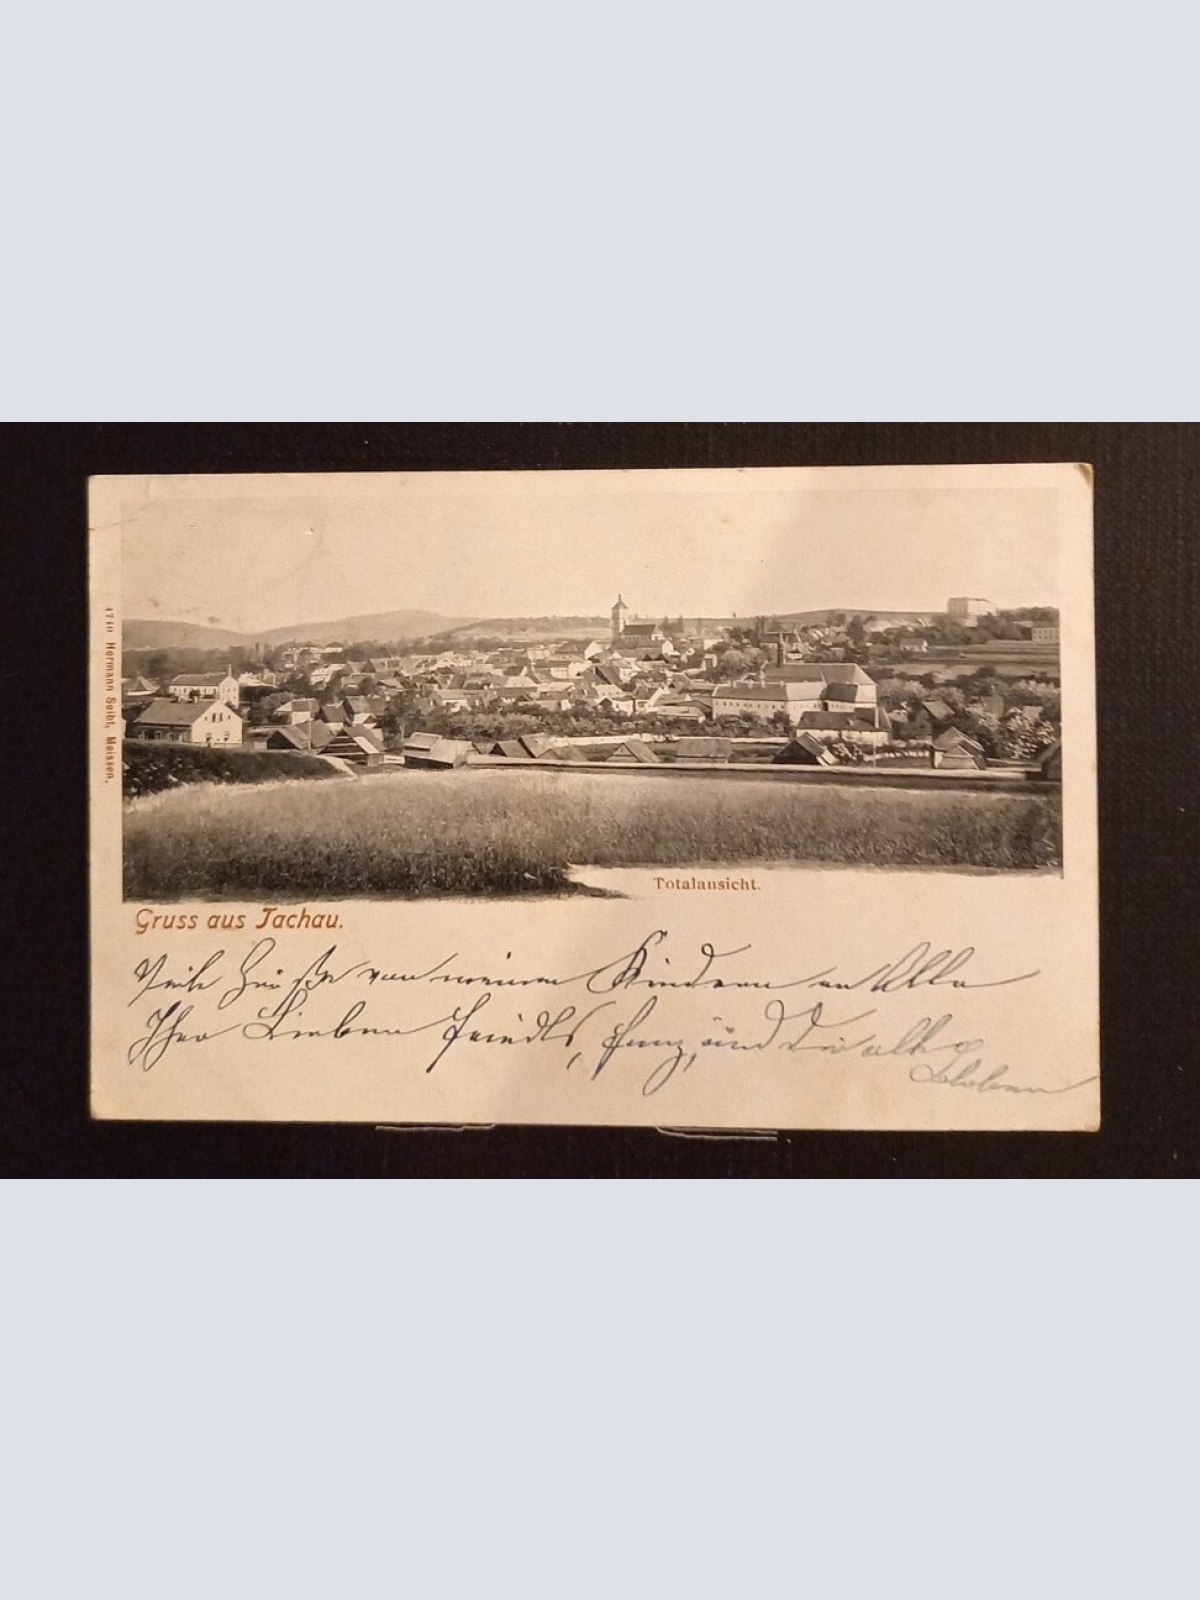 4740 Hermann Seibt, Meissen.
Totalansicht.
Gruss aus Tachau.
Viele Grüße von meinen Kindern an Alle
Ihre Lieben Friedl, und die alte